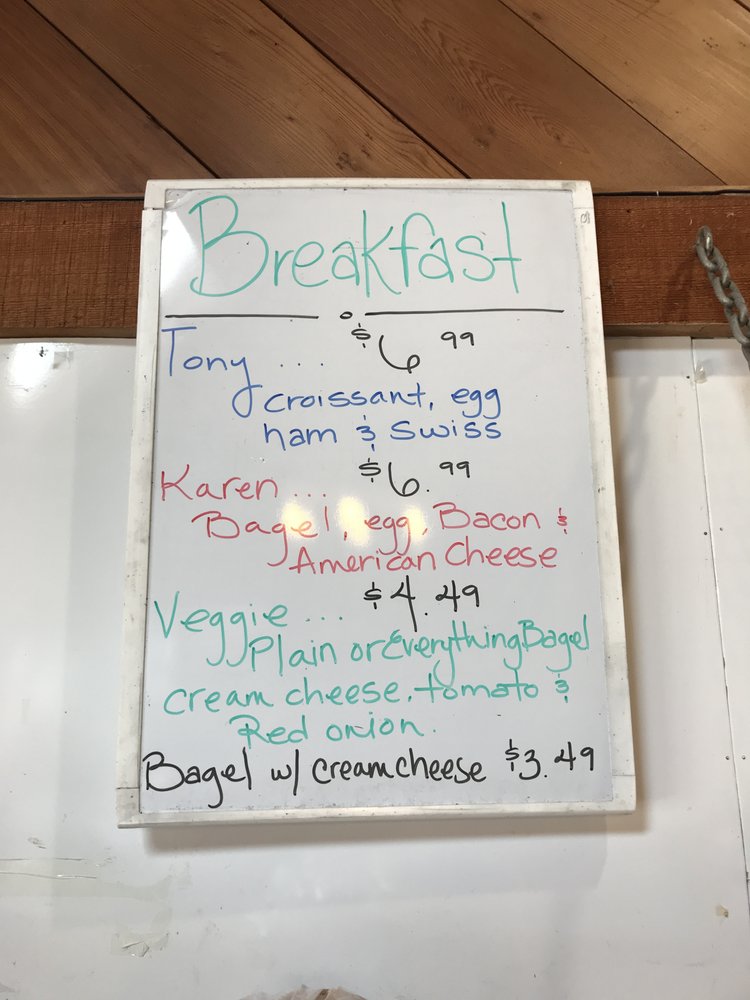 Breakfast
Tony ... $6 99
croissant, egg
ham & Swiss
Karen ... $6.99
Bagel, egg, Bacon &
American Cheese
Veggie ... $4.49
Plain or Everything Bagel
cream cheese, tomato &
Red onion.
Bagel w/ cream cheese $3.49